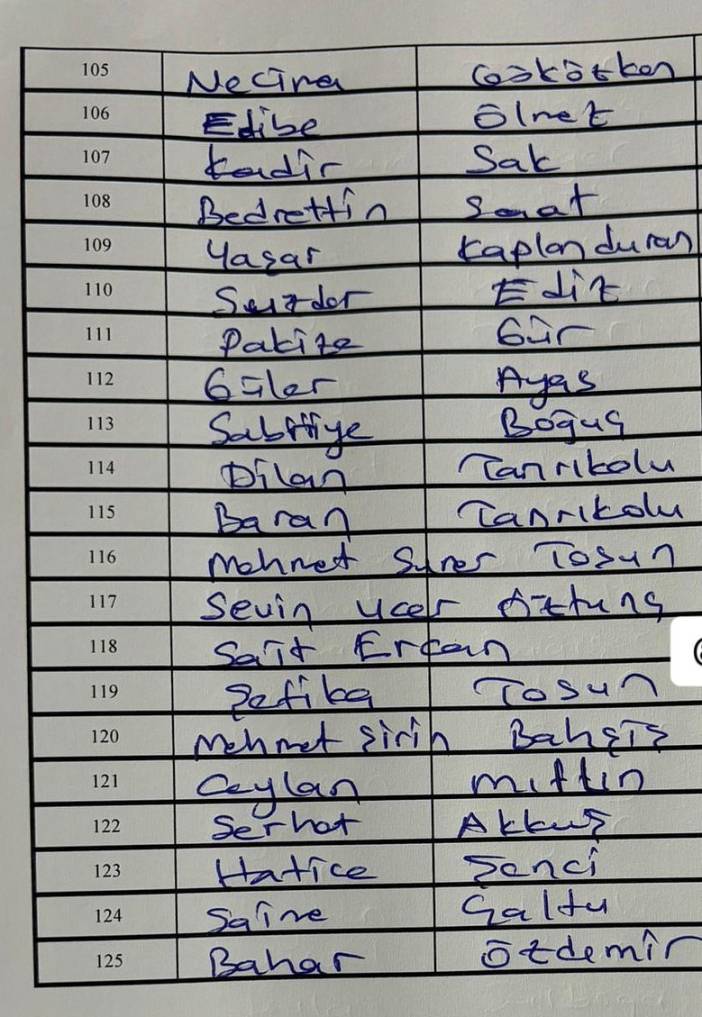 105 Necina Gökötken
106 Edibe Ölmet
107 Kadir Sak
108 Bedrettin
109 Yaşar Kaplanduran
110 Edit
111 Pakize Gür
112 Güler Ayas
113 Sabriye Boğuş
114 Dilan Tanrıkolu
115 Baran Tanrıkolu
116 Mehmet Surer Tosun
117 Sevin Ucer Öztunç
118 Sait Ercan
119 Şefika Tosun
120 Mehmet Şirin Bahşiş
121 Ceylan
122 Serhat Akkuş
123 Hatice Şenci
124 Saime Galtu
125 Bahar Özdemir